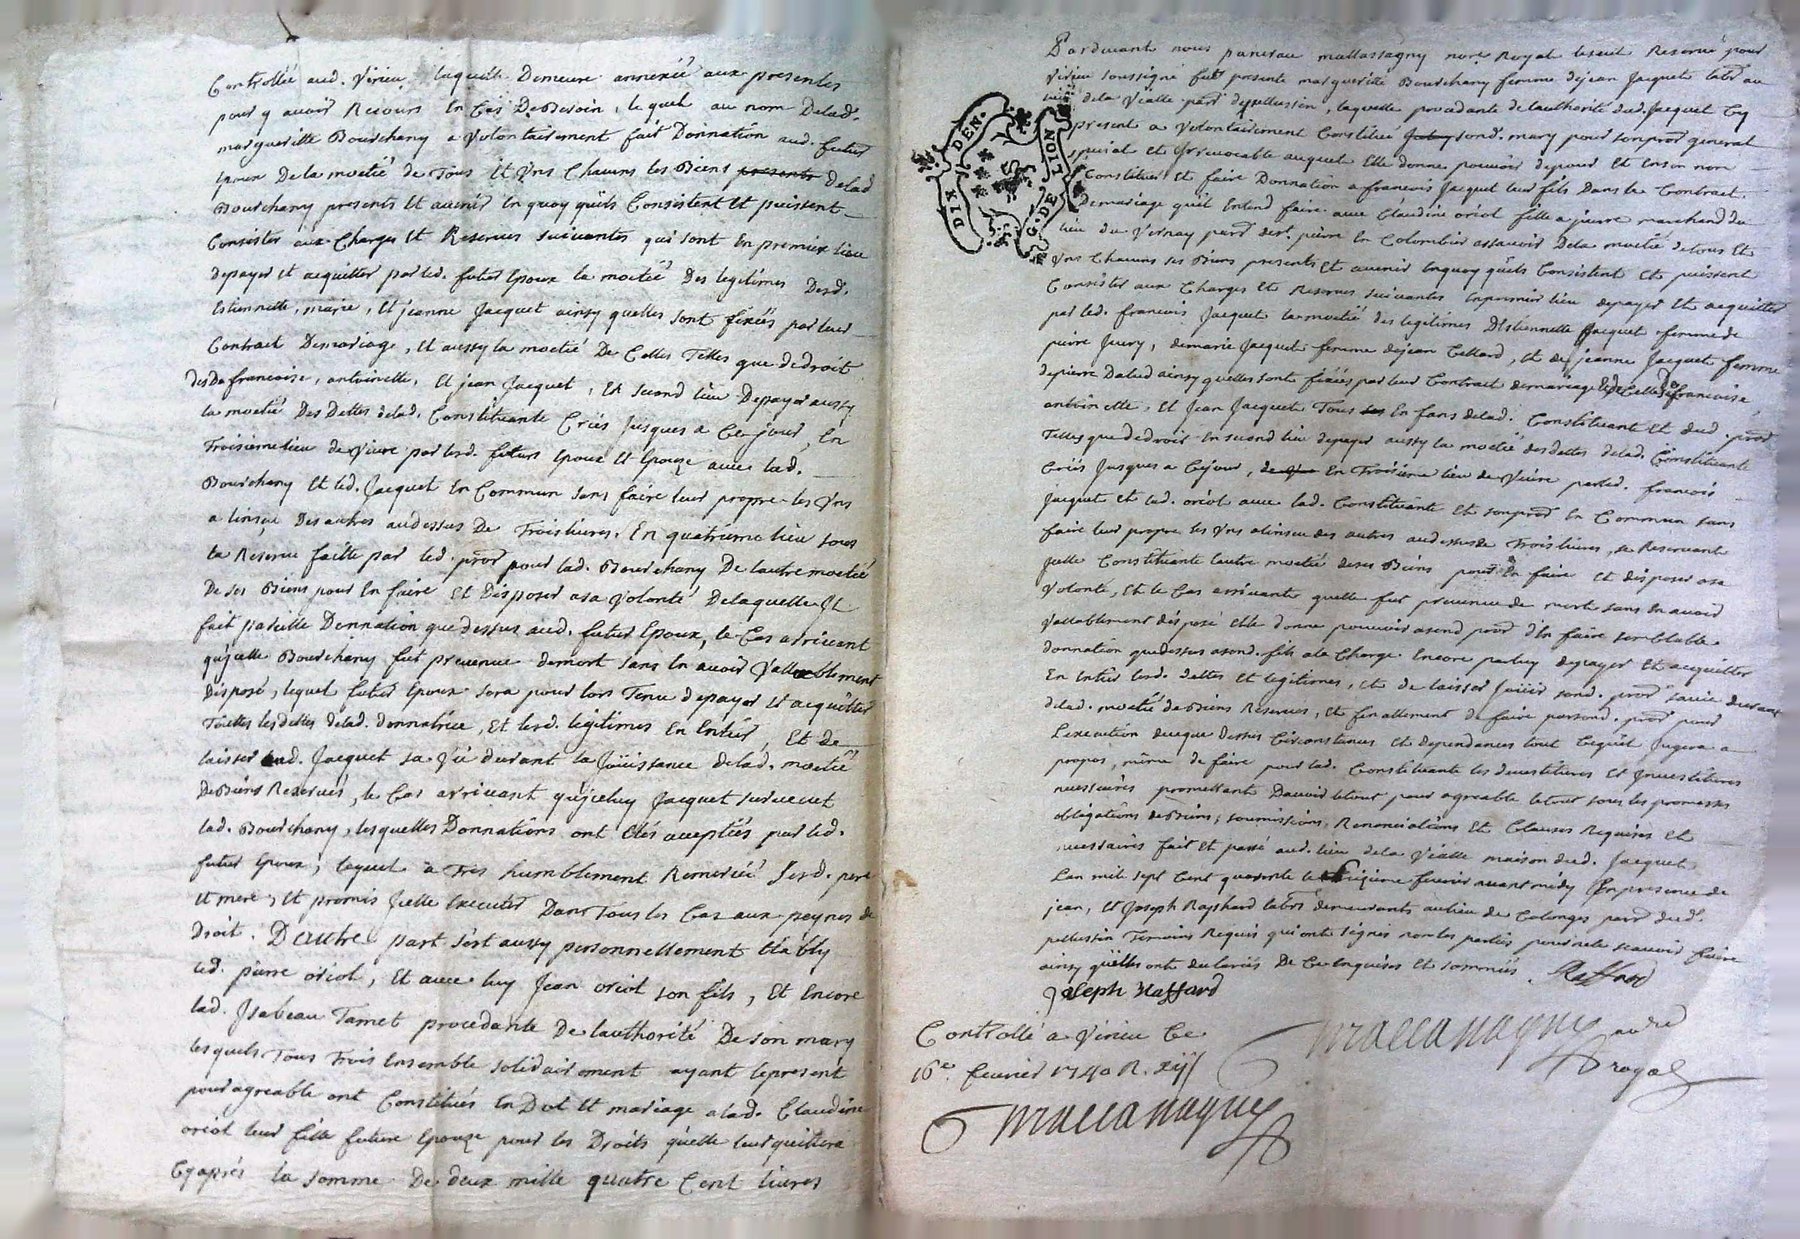 Controllée aud. Virieu, laquelle Demeure annexée aux presentes
pour y avoir Recours En Cas De Besoin, lequel au nom Delad.
margueritte Bourchany a volontairement fait Donnation aud. futur
Epoux De la moetié de Tous Et Vns Chacuns les Biens presents delad
Bourchany presents Et avenir En quoy quils Consistent Et puissent
Consister aux Charges Et Reserves suivantes qui sont En premier lieu
depayer Et acquitter par led. futur Epoux la moetié Des legitimes Desd.
Estiennette, marie, Et jeanne Jacquet ainsy quelles sont fixées par leur
Contract Demariage, Et aussy la moetié De Celles Telles que de droit
desd francoise, antoinette, Et jean Jacquet, En second lieu Depayer aussy
la moetié Des Dettes delad. Constituante Créés Jusques a Ce jour, En
Troisieme lieu de Vivre par lesd. futurs Epoux Et Epouze avec lad.
Bourchany Et led. Jacquet En Commun sans faire leur propre les Vns
a linsçu Des autres audessus De Trois livres. En quatrieme lieu sous
la Reserve faitte par led. pror pour lad. Bourchany De lautre moetié
De ses Biens pour En faire Et Disposer a sa volonté Delaquelle Il
fait pareille Donnation que dessus aud. futur Epoux, le Cas arrivant
qu'jcelle Bourchany fut prevenue demort sans En avoir Vallablement
Disposé, lequel futur Epoux sera pour lors Tenu depayer Et acquitter
Touttes les dettes delad. donnatrice, Et lesd. legitimes En Entier, Et de
laisser aud. Jacquet sa Vie durant la Joüissance delad. moetié
De Biens Reservés, le Cas arrivant qu'jceluy Jacquet survecut
lad. Bourchany, lesquelles Donnations ont Etés aceptées par led.
futur Epoux, lequel a Tres humblement Remercié lesd. pere
Et mere, Et promis Jcelle Executer Dans Tous les Cas aux peynes de
Droit. D'autre part s'est aussy personnellement Etably
led. pierre oriol, Et avec luy Jean oriol son fils, Et Encore
lad. Jsabeau Tamet procedante De lauthorité De son mary
lesquels Tous Trois Ensemble solidairement ayant lepresent
pour agreable ont Constitués En Dot Et mariage alad. Claudine
oriol leur fille future Epouze pour les Droits quelle leur quittera
Cyaprés la somme De deux mille quatre Cent livres
DIX DEN.
G. DE LION
Pardevant nous not.re Royal Reservé pour
Virieu soussigné fut presente margueritte Bourchany femme dejean Jacquet labr. au
lieu dela Vialle parr. depellussin, laquelle procedante de lauthorité dud. Jacquet Cy
present a Volontairement Constitué sond. mary pour son pror general
special Et Jrrevocable auquel Elle donne pouvoir depour Et En son nom
Constituer Et faire Donnation a francois Jacquet leur fils Dans le Contract
Demariage quil Entend faire avec Claudine oriol fille a pierre marchand du
lieu du Vernay parr. de st. pierre En Colombier assavoir Dela moetié detous Et
Vns Chacuns ses Biens presents Et avenir Enquoy quils Consistent Et puissent
Consister aux Charges Et Reserves suivantes Enpremier lieu depayer Et acquitter
par led. francois Jacquet la moetié des legitimes DEstiennette Jacquet femme de
pierre Juery, demarie Jacquet femme dejean Cellard, Et de jeanne Jacquet femme
depierre Dalud ainsy quelles sont fixées par leur Contract demariage Et de Celles de francoise
antoinette, Et Jean Jacquet Tous Enfans delad. Constituante Et dud. pror
Telles que dedroit En second lieu depayer aussy la moetié desdettes delad. Constituante
Créés Jusques a Cejour, En Troisieme lieu de Vivre par led. francois
Jacquet Et lad. oriol avec lad. Constituante Et son pror En Commun sans
faire leur propre les Vns alinsceu des autres audessus de Trois livres, se Reservant
Jcelle Constituante lautre moetié deses Biens pour En faire Et disposer asa
Volonté, Et le Cas arrivant quelle fut prevenue de mort sans En avoir
Vallablement disposé Elle donne pouvoir asond pror d'En faire semblable
donnation quedessus asond. fils ala Charge Encore parluy depayer Et acquitter
En Entier lesd. dettes Et legitimes, Et de laisser Jouir sond. pror savie durant
delad. moetié de Biens Reservés, Et finallement de faire parsond. pror pour
Lexecution duque dessus Circonstances Et dependances tout Cequil Jugera a
propos, même de faire pour lad. Constituante les devestitures Et Jnvestitures
necessaires promettante Davoir letout pour agreable letout sous les promesses
obligations deBiens, soumissions, Renonciations Et Clauses Requises Et
necessaires fait Et passé aud. lieu dela Vialle maison dud. Jacquet
Lan mil sept Cent quarente le seizieme fevrier avant midy Enpresence de
jean, Et Joseph Raffard labrs demeurants aulieu de Colonges parr. dud.
pellussin Temoins Requis qui ont signés non les parties pour nele scavoir faire
ainsy quelles ont declarées De Ce Enquises Et sommés. Raffard
Joseph Raffard
Controllé a Virieu Ce
16e. fevrier 1740 R. xijs